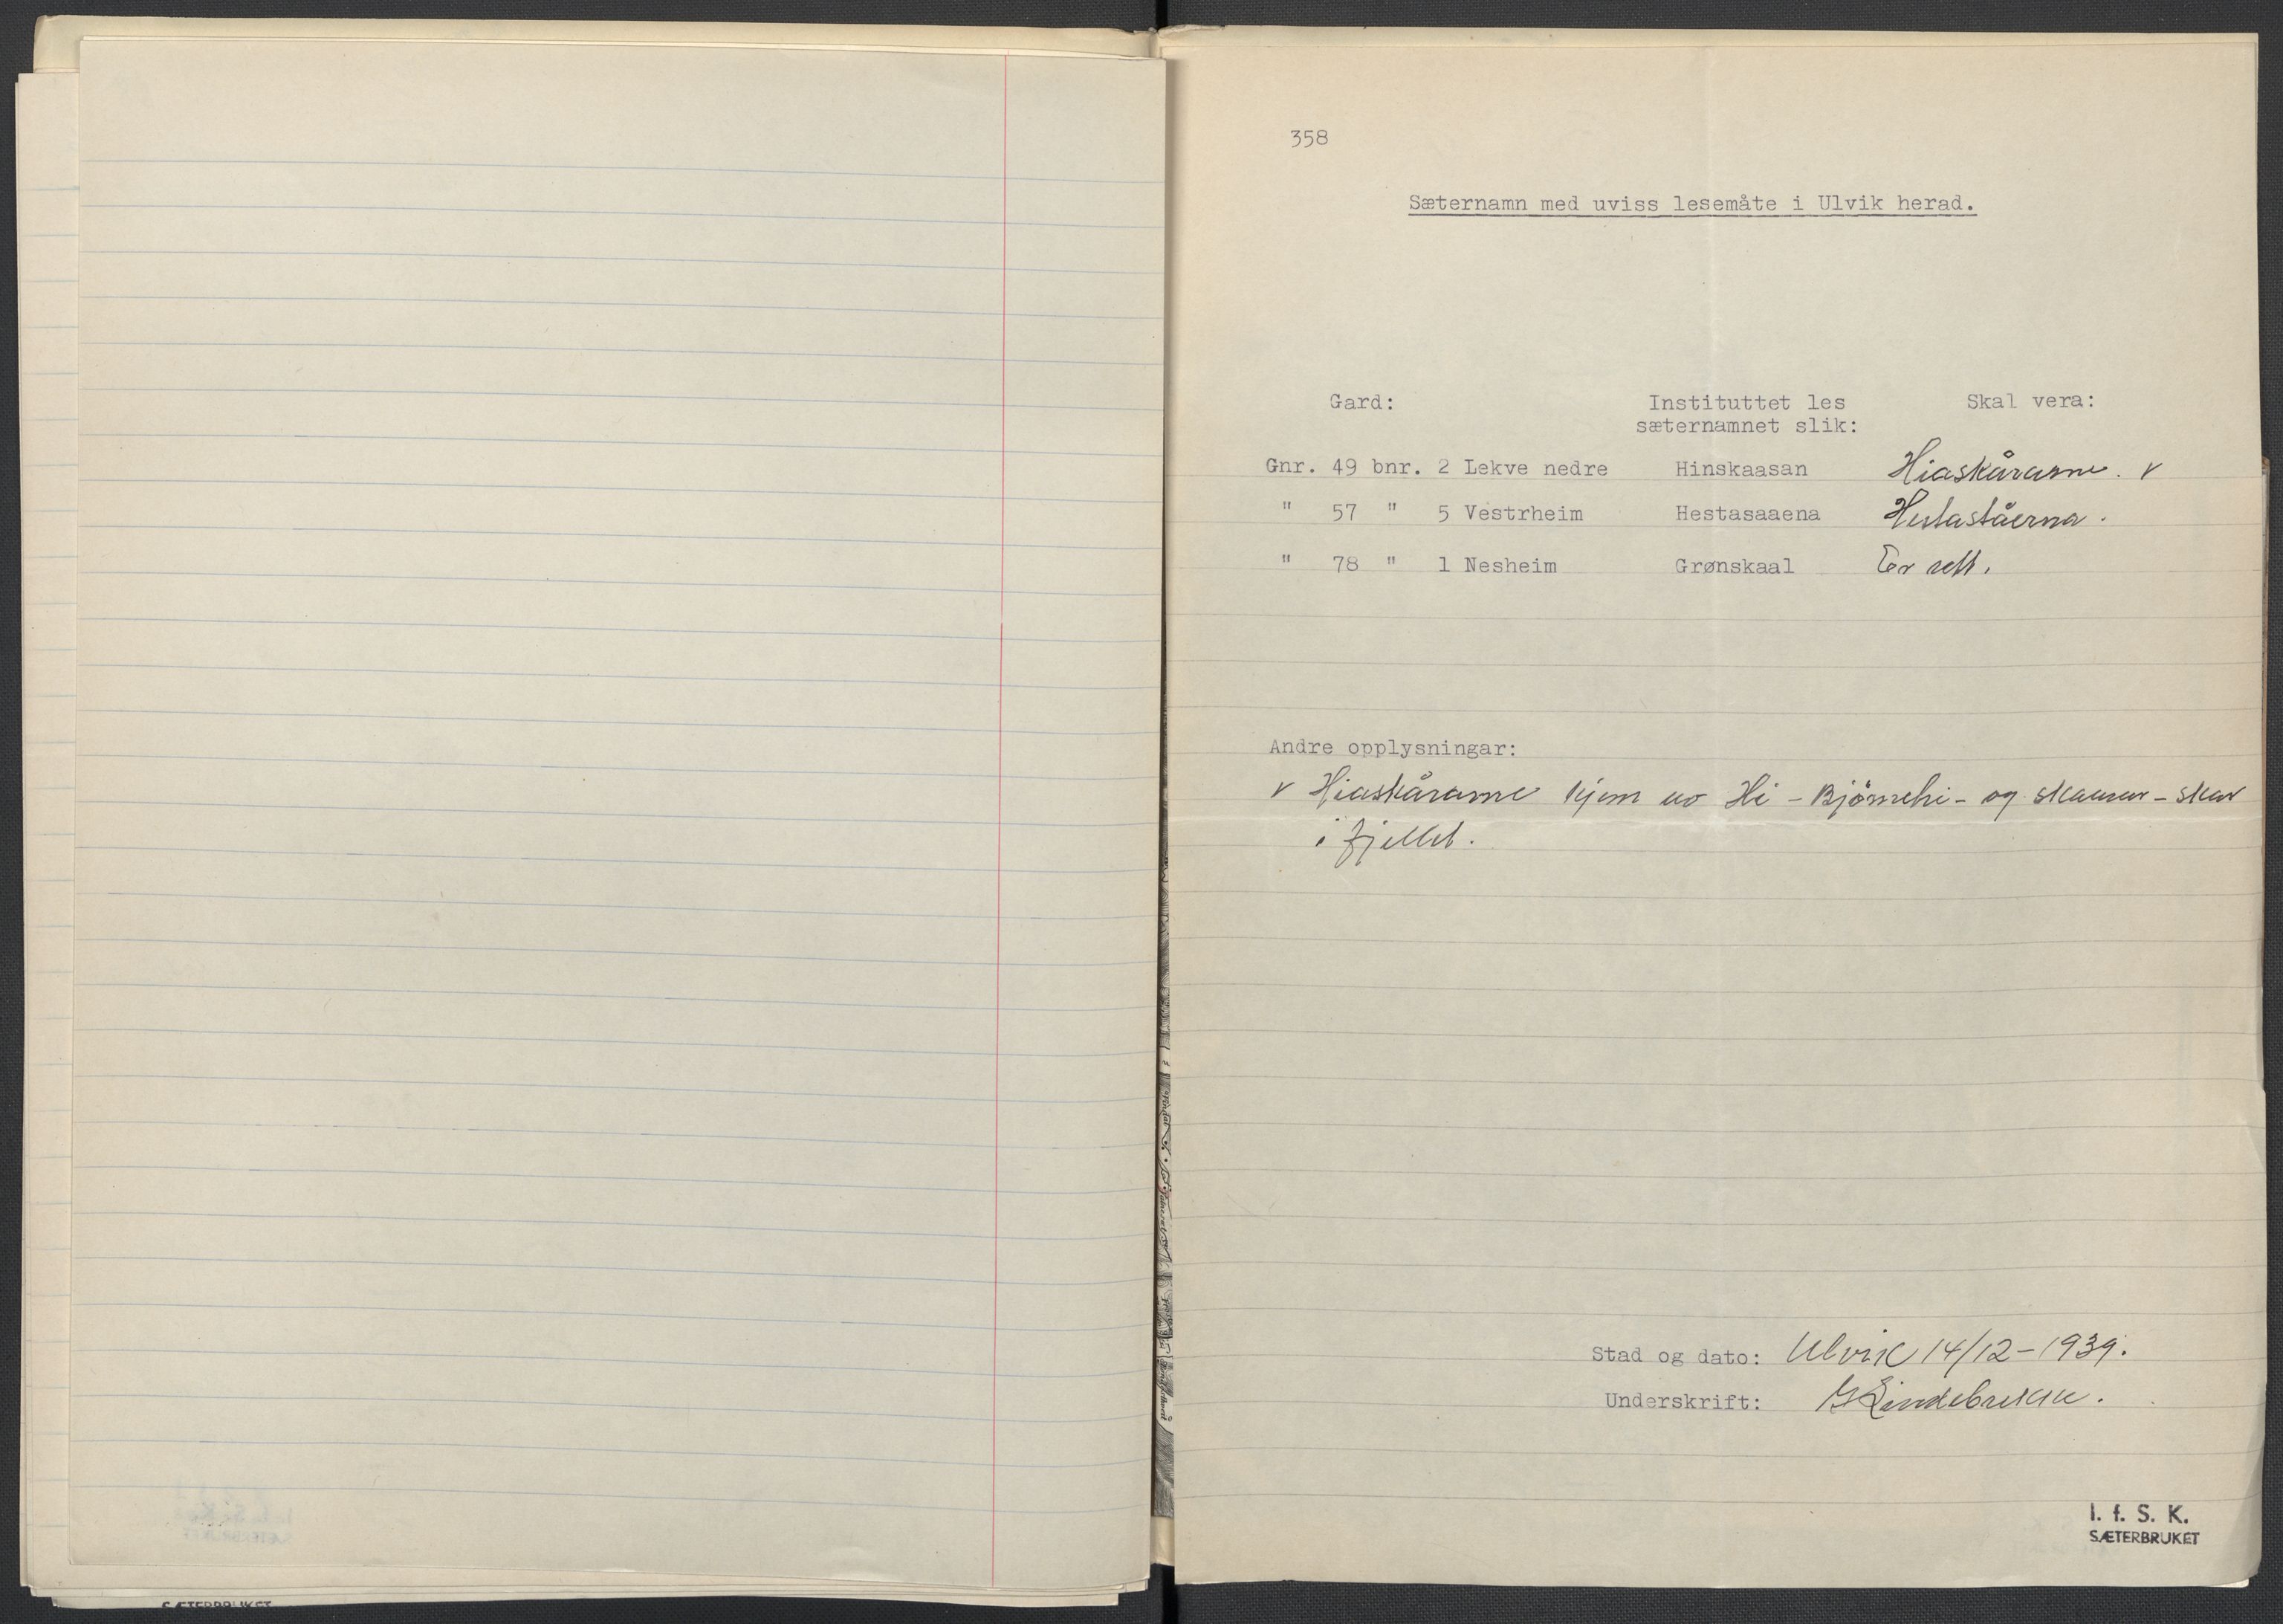 358
Sæternamn med uviss lesemåte i Ulvik herad.
Gard: Instituttet les sæternamnet slik: Skal vera:
Gnr. 49 bnr. 2 Lekve nedre Hinskaasan Hiaskårarne. v
" 57 " 5 Vestrheim Hestasaaena Hestaståerna.
" 78 " 1 Nesheim Grønskaal Er rett.
Andre opplysningar:
v Hiaskårarne kjem av Hi - Bjørnehi - og - skar
i fjellet.
Stad og dato: Ulvik 14/12-1939.
Underskrift: Lindebrekke.
I. f. S. K.
SÆTERBRUKET
SÆTERBRUKET